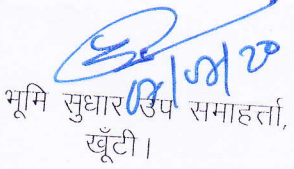 भूमि सुधार उप समाहर्ता,
खूँटी।